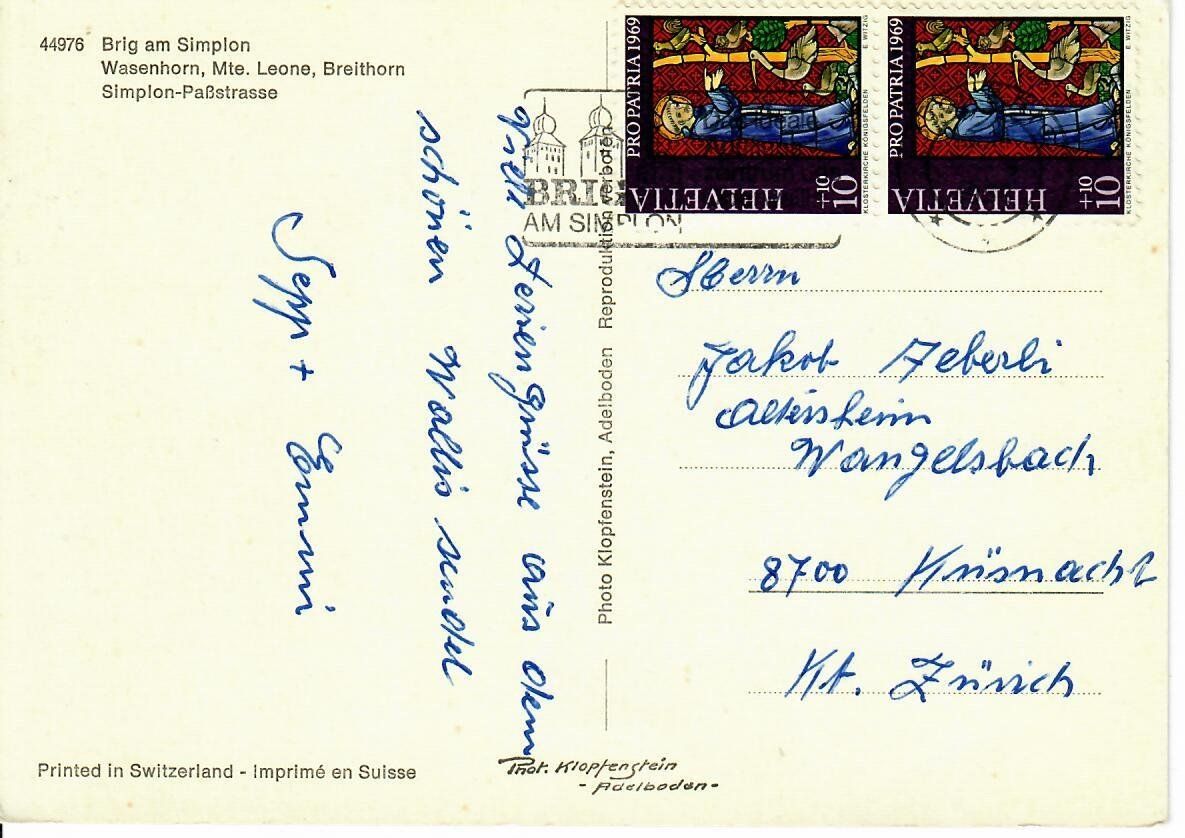 44976 Brig am Simplon
Wasenhorn, Mte. Leone, Breithorn
Simplon-Paßstrasse
Feriengrüsse aus dem
schönen Wallis sendet
Sepp + Emmi
Printed in Switzerland - Imprimé en Suisse
Photo Klopfenstein, Adelboden Reproduktion verboten
Phot. Klopfenstein
- Adelboden -
BRIG
AM SIMPLON
PRO PATRIA 1969
HELVETIA
10
+10
KLOSTERKIRCHE KÖNIGSFELDEN
E. WITZIG
PRO PATRIA 1969
HELVETIA
10
+10
KLOSTERKIRCHE KÖNIGSFELDEN
E. WITZIG
Herrn
Jakob Aeberli
Altersheim
Wangelsbach
8700 Küsnacht
Kt. Zürich